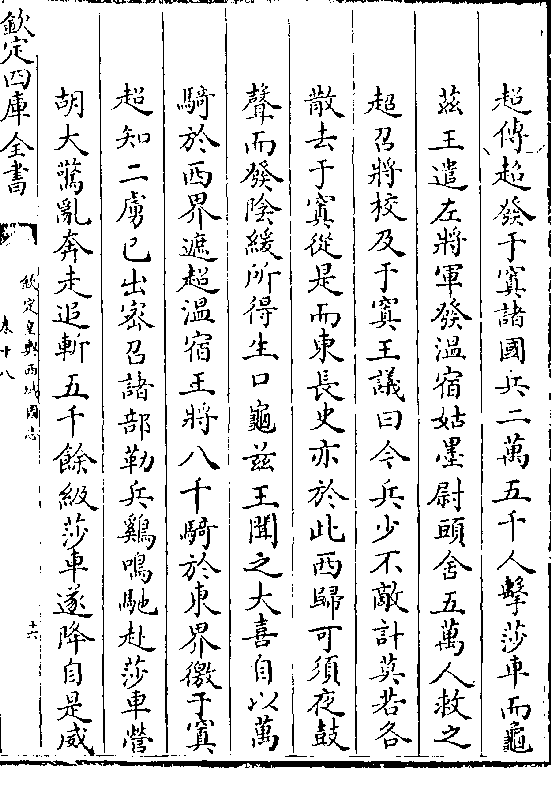 超傳超發于窴諸國兵二萬五千人擊莎車而龜
茲王遣左將軍發溫宿姑墨尉頭合五萬人救之
超召將校及于窴王議曰今兵少不敵計莫若各
散去于窴從是而東長史亦於此西歸可須夜鼓
聲而發陰緩所得生口龜茲王聞之大喜自以萬
騎於西界遮超溫宿王將八千騎於東界徼于窴
超知二虜已出密召諸部勒兵雞鳴馳赴莎車營
胡大驚亂奔走追斬五千餘級莎車遂降自是威
欽定四庫全書
欽定皇輿西域圖志
卷十八
十六